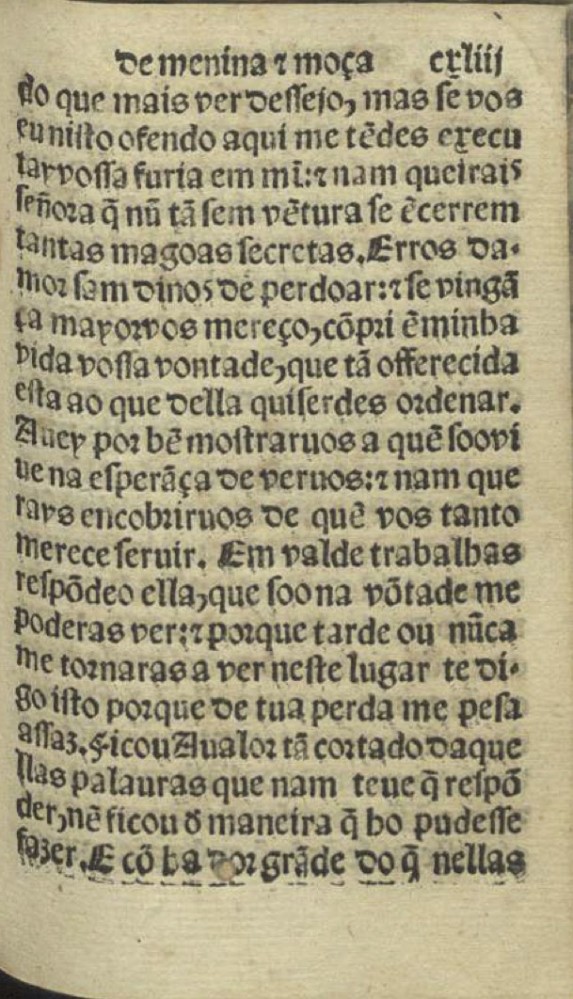 de menina ⁊ moça cxliij
do que mais ver dessejo, mas se vos
eu nisto ofendo aqui me tẽdes execu
tay vossa furia em mĩ: ⁊ nam queirais
señora q̃ nũ tã sem vẽtura se ẽcerrem
tantas magoas secretas. Erros da-
mor sam dinos de perdoar: ⁊ se vingã
ça mayor vos mereço, cõpri ẽ minha
vida vossa vontade, que tã offerecida
esta ao que della quiserdes ordenar.
Auey por bẽ mostraruos a quẽ soo vi
ue na esperãça de veruos: ⁊ nam que
rays encobriruos de quẽ vos tanto
merece seruir. Em valde trabalhas
respõdeo ella, que soo na võtade me
poderas ver: ⁊ porque tarde ou nũca
me tornaras a ver neste lugar te di-
go isto porque de tua perda me pesa
assaz. Ficou Aualor tã cortado daque
llas palauras que nam teue q̃ respõ
der, nẽ ficou d̃ maneira q̃ ho pudesse
fazer. E cõ ha dor grãde do q̃ nellas